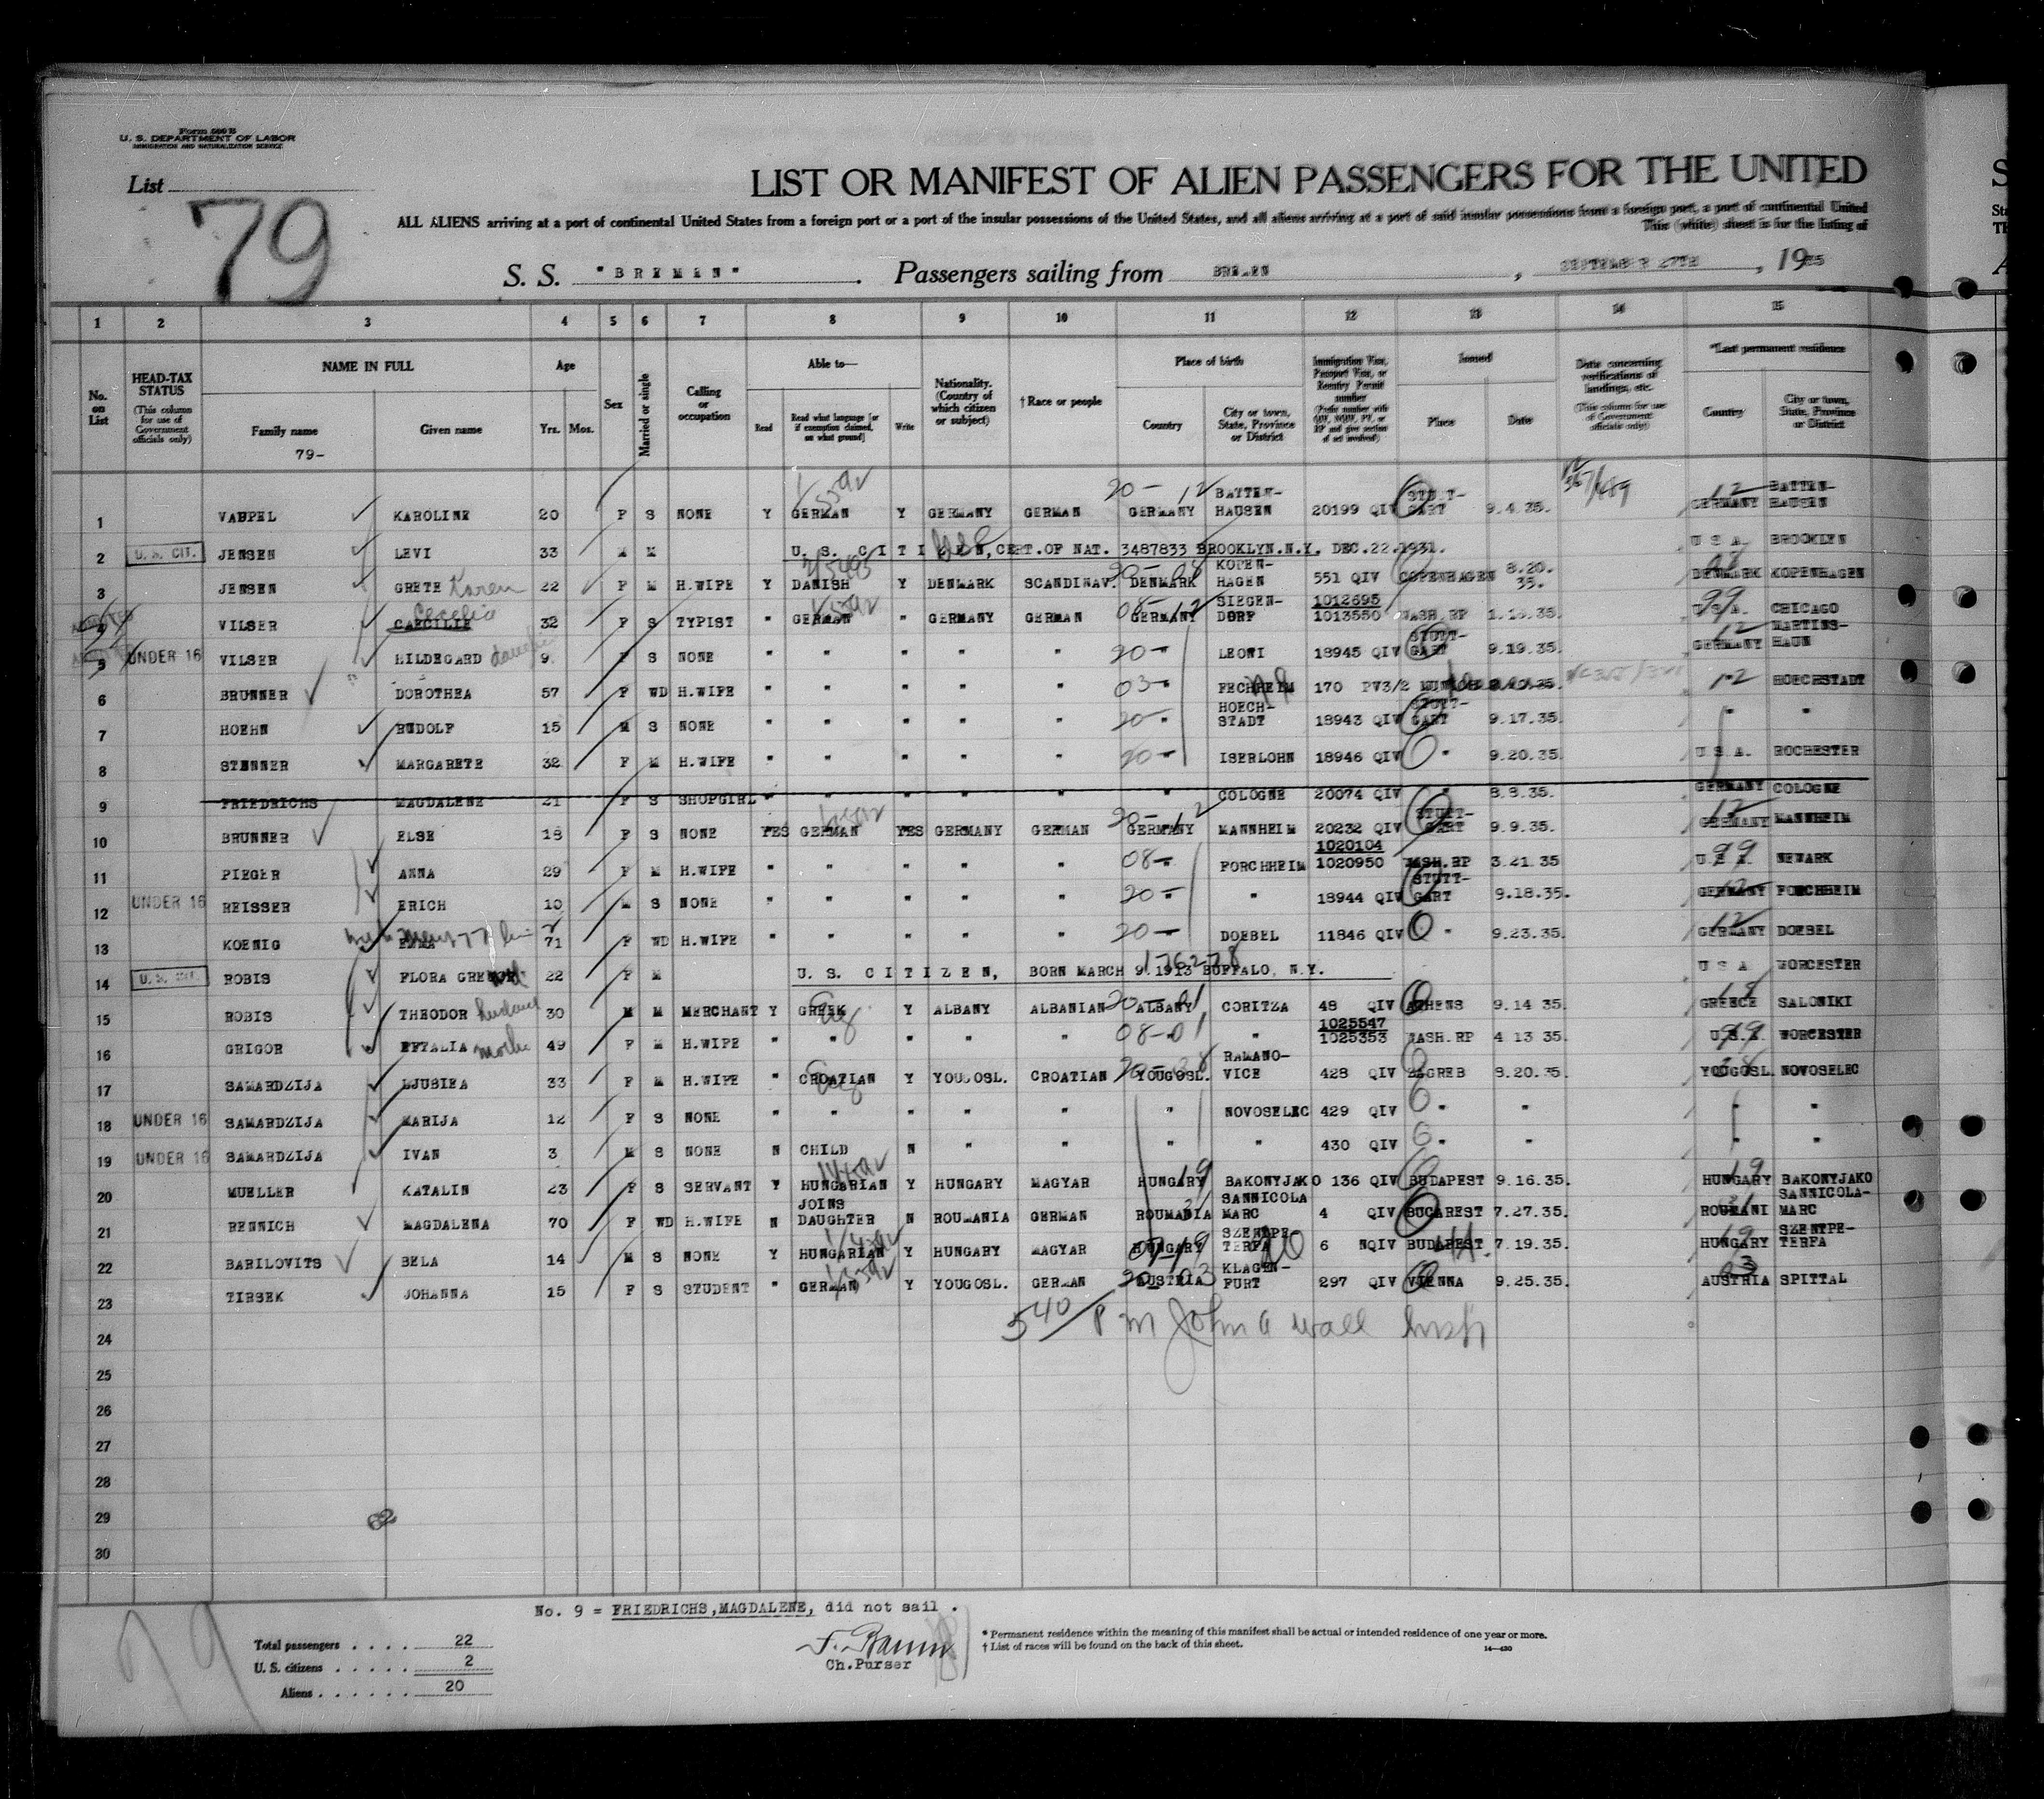 Form 500 B
U. S. DEPARTMENT OF LABOR
IMMIGRATION AND NATURALIZATION SERVICE
List
79
LIST OR MANIFEST OF ALIEN PASSENGERS FOR THE UNITED
ALL ALIENS arriving at a port of continental United States from a foreign port or a port of the insular possessions of the United States, and all aliens arriving at a port of said insular possessions from a foreign port, a port of continental United
This (white) sheet is for the listing of
S. S. "BREMEN". Passengers sailing from BREMEN, SEPTEMBER 27TH, 1935
1 2 3 4 5 6 7 8 9 10 11 12 13 14 15
No. on List
HEAD-TAX STATUS (This column for use of Government officials only)
NAME IN FULL
Family name Given name
79-
Age
Yrs. Mos.
Sex
Married or single
Calling or occupation
Able to—
Read Read what language [or if exemption claimed, on what ground] Write
Nationality. (Country of which citizen or subject)
† Race or people
Place of birth
Country City or town, State, Province or District
Immigration Visa, Passport Visa, or Reentry Permit number
Issued
Place Date
Data concerning verifications of landings, etc. (This column for use of Government officials only)
*Last permanent residence
Country City or town, State, Province or District
1 KAROLINE 20 F S NONE Y GERMAN Y GERMANY GERMAN 20- 12 GERMANY BATTEN-HAUSEN 20199 QIV STUTT-GART 9.4.35. 12 GERMANY BATTEN-HAUSEN
2 U. S. CIT. JENSEN LEVI 33 M M U. S. CITIZEN, CERT.OF NAT. 3487833 BROOKLYN.N.Y. DEC.22.1931. U S A. BROOKLYN
3 JENSEN GRETE Karen 22 F M H.WIFE Y DANISH Y DENMARK SCANDINAV. DENMARK KOPEN-HAGEN 551 QIV COPENHAGEN 8.20.35. DENMARK KOPENHAGEN
4 VILSER CAECILIE Cecelia 32 F S TYPIST " GERMAN " GERMANY GERMAN 08- 12 GERMANY SIEGEN-DORF 1012695 1013550 WASH.RP 99 U S A. CHICAGO
5 UNDER 16 VILSER HILDEGARD 9 F S NONE " " " " " 20- " LEONI 18945 QIV STUTT-GART 9.19.35. 12 GERMANY MARTINS-HAUN
6 BRUNNER DOROTHEA 57 F WD H.WIFE " " " " " 03- " FECHHEIM 170 PV3/2 MUNICH 12 HOECHSTADT
7 HOEHN RUDOLF 15 M S NONE " " " " " 20- " HOECH-STADT 18943 QIV STUTT-GART 9.17.35. " "
8 STENNER MARGARETE 32 F M H.WIFE " " " " " 20- " ISERLOHN 18946 QIV " 9.20.35. U S A. ROCHESTER
9 FRIEDRICHS MAGDALENE 21 F S SHOPGIRL " " " " " " COLOGNE 20074 QIV " 8.8.35. GERMANY COLOGNE
10 BRUNNER ELSE 18 F S NONE YES GERMAN YES GERMANY GERMAN 20- 12 GERMANY MANNHEIM 20232 QIV STUTT-GART 9.9.35. 12 GERMANY MANNHEIM
11 PIEGER ANNA 29 F M H.WIFE " " " " " 08- " FORCHHEIM 1020104 1020950 WASH.RP 3.21.35 99 U S A. NEWARK
12 UNDER 16 REISSER ERICH 10 M S NONE " " " " " 20- " " 18944 QIV STUTT-GART 9.18.35. 12 GERMANY FORCHHEIM
13 KOENIG 71 F WD H.WIFE " " " " " 20- " DOEBEL 11846 QIV " 9.23.35. 12 GERMANY DOEBEL
14 U. S. CIT. ROBIS FLORA 22 F M U. S. CITIZEN, BORN MARCH 9.1913 BUFFALO, N.Y. U S A WORCESTER
15 ROBIS THEODOR husband 30 M M MERCHANT Y GREEK Y ALBANY ALBANIAN 20-01 ALBANY CORITZA 48 QIV ATHENS 9.14 35. GREECE SALONIKI
16 GRIGOR EFTALIA 49 F M H.WIFE " " " " " 08-01 " 1025547 1025353 WASH.RP 4 13 35. 99 U.S.A. WORCESTER
17 SAMARDZIJA LJUBICA 33 F M H.WIFE " CROATIAN Y YOUGOSL. CROATIAN YOUGOSL. RAMANO-VICE 428 QIV ZAGREB 8.20.35. YOUGOSL. NOVOSELEC
18 UNDER 16 SAMARDZIJA MARIJA 12 F S NONE " " " " " " NOVOSELEC 429 QIV " " " "
19 UNDER 16 SAMARDZIJA IVAN 3 M S NONE N CHILD N " " " " 430 QIV " " " "
20 MUELLER KATALIN 23 F S SERVANT Y HUNGARIAN Y HUNGARY MAGYAR 19 HUNGARY BAKONYJAKO 136 QIV BUDAPEST 9.16.35. 19 HUNGARY BAKONYJAKO
21 RENNICH MAGDALENA 70 F WD H.WIFE N JOINS DAUGHTER N ROUMANIA GERMAN ROUMANIA SANNICOLA MARC 4 QIV BUCAREST 7.27.35. ROUMANI SANNICOLA-MARC
22 BARILOVITS BELA 14 M S NONE Y HUNGARIAN Y HUNGARY MAGYAR HUNGARY SZENTPE-TERFA 6 NQIV BUDAPEST 7.19.35. 19 HUNGARY SZENTPE-TERFA
23 TIRSEK JOHANNA 15 F S STUDENT " GERMAN Y YOUGOSL. GERMAN AUSTRIA KLAGEN-FURT 297 QIV VIENNA 9.25.35. 03 AUSTRIA SPITTAL
24 5 40/ P M John A Wall Insp
25
26
27
28
29
30
No. 9 = FRIEDRICHS,MAGDALENE, did not sail.
Total passengers . . . . 22
U. S. citizens . . . . . 2
Aliens . . . . . . 20
Ch.Purser
* Permanent residence within the meaning of this manifest shall be actual or intended residence of one year or more.
† List of races will be found on the back of this sheet.
14—430
79